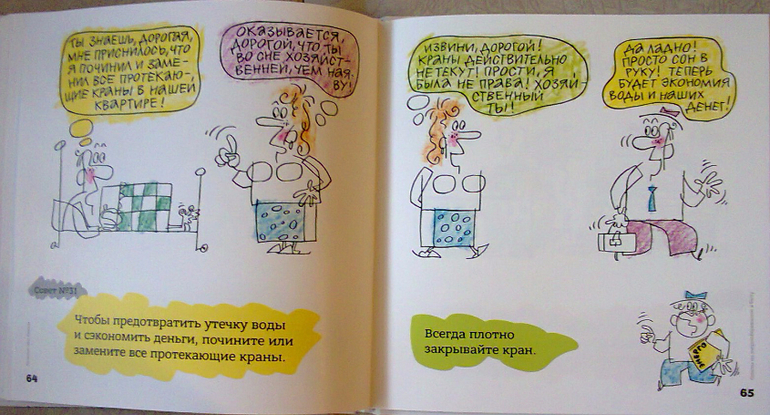 ТЫ ЗНАЕШЬ, ДОРОГАЯ,
МНЕ ПРИСНИЛОСЬ, ЧТО
Я ПОЧИНИЛ И ЗАМЕ-
НИЛ ВСЕ ПРОТЕКАЮ-
ЩИЕ КРАНЫ В НАШЕЙ
КВАРТИРЕ!
ОКАЗЫВАЕТСЯ,
ДОРОГОЙ, ЧТО ТЫ
ВО СНЕ ХОЗЯЙСТ-
ВЕННЕЙ, ЧЕМ НАЯ-
ВУ!
Совет №31
Чтобы предотвратить утечку воды
и сэкономить деньги, почините или
замените все протекающие краны.
64
ИЗВИНИ, ДОРОГОЙ!
КРАНЫ ДЕЙСТВИТЕЛЬНО
НЕ ТЕКУТ! ПРОСТИ, Я
БЫЛА НЕ ПРАВА! ХОЗЯЙ-
СТВЕННЫЙ
ТЫ!
ДА ЛАДНО!
ПРОСТО СОН В
РУКУ! ТЕПЕРЬ
БУДЕТ ЭКОНОМИЯ
ВОДЫ И НАШИХ
ДЕНЕГ!
Всегда плотно
закрывайте кран.
65